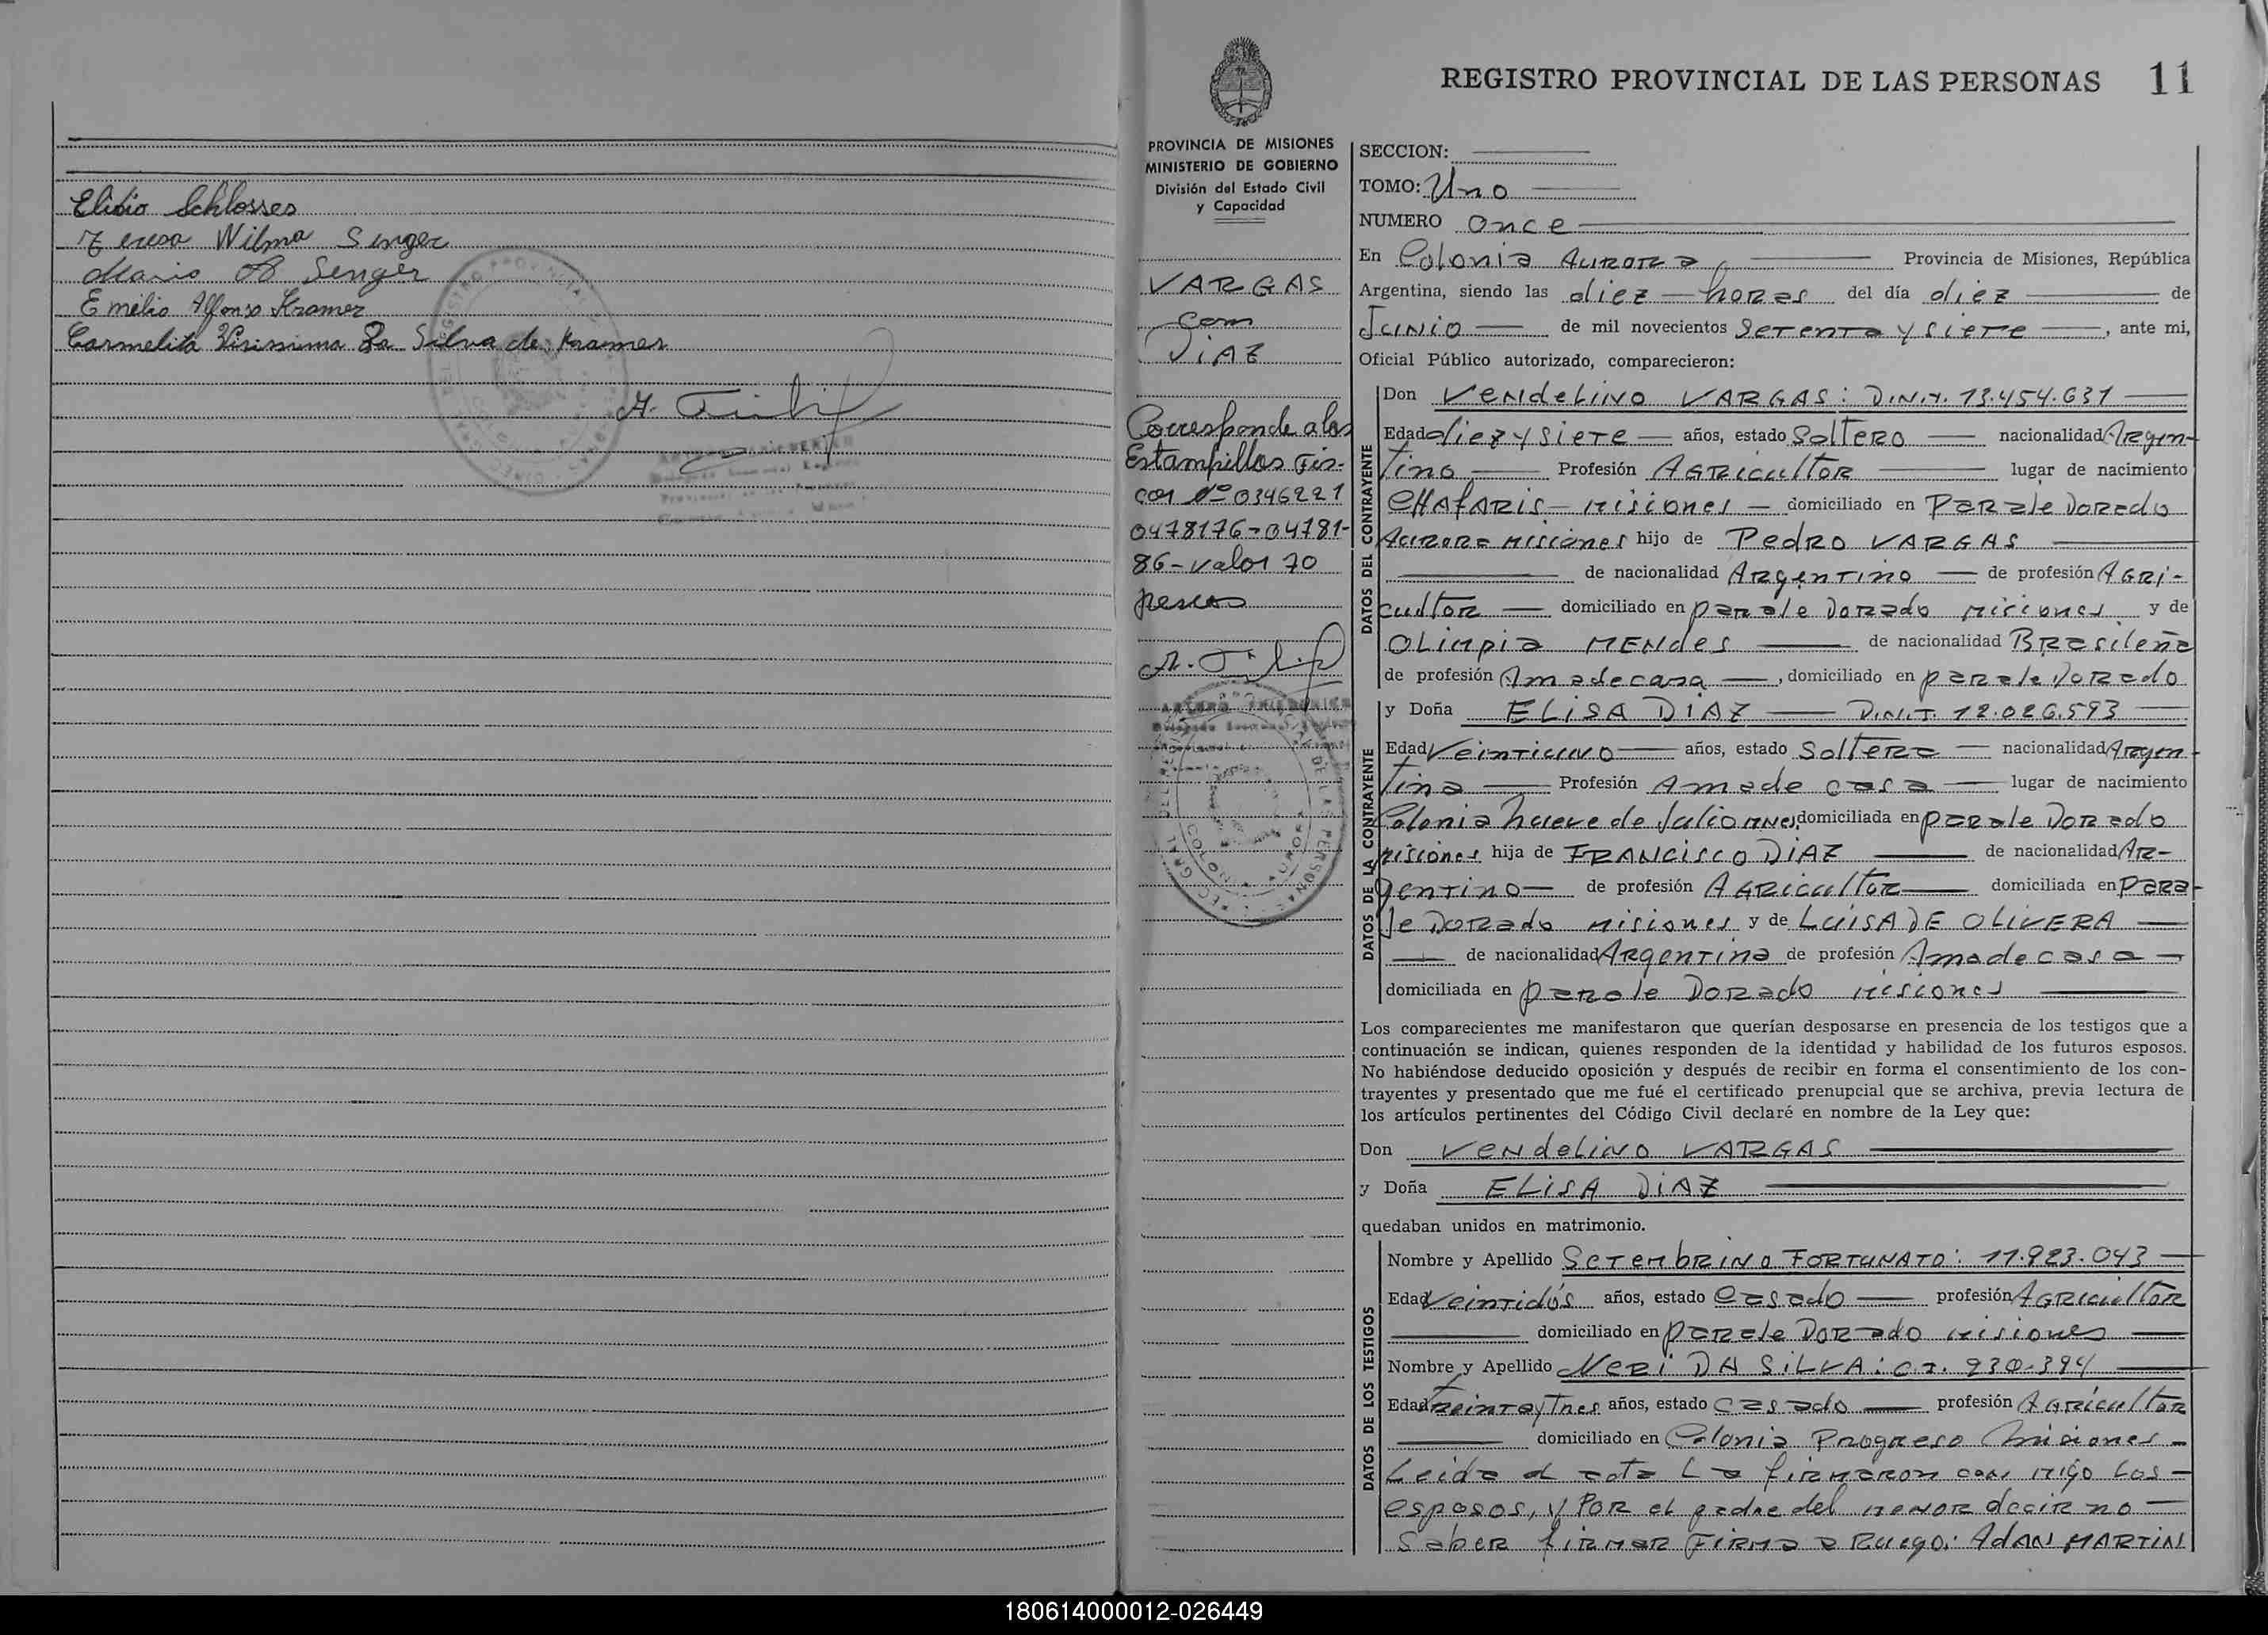 Elidio Schlosser
Teresa Wilma Senger
Mario A Senger
Emilio Alfonso Kramer
Carmelita Virissima Da Silva de Kramer
REGISTRO PROVINCIAL DE LAS PERSONAS 11
PROVINCIA DE MISIONES
MINISTERIO DE GOBIERNO
División del Estado Civil
y Capacidad
VARGAS
con
DIAZ
Corresponde a las
Estampillas Fis-
cal Nº 0346221
0478176-04781-
86-valor 70
pesos
SECCION:
TOMO: Uno
NUMERO once
En Colonia AURORA Provincia de Misiones, República
Argentina, siendo las diez horas del día diez de
Junio de mil novecientos Setenta y siete, ante mi,
Oficial Público autorizado, comparecieron:
DATOS DEL CONTRAYENTE
Don Vendelino VARGAS: D.N.I. 13.454.631
Edad diez y siete años, estado Soltero nacionalidad Argen-
tino Profesión AGRicultor lugar de nacimiento
CHAfARis - misiones - domiciliado en Paraje Dorado
Aurora misiones hijo de Pedro VARGAS
de nacionalidad Argentino de profesión AGRi-
cultor domiciliado en paraje Dorado misiones y de
Olimpia MENdes de nacionalidad Brasileña
de profesión Ama de casa, domiciliado en paraje Dorado
DATOS DE LA CONTRAYENTE
y Doña ELISA DIAZ D.N.I. 12.026.593
Edad Veintiuno años, estado Soltera nacionalidad Argen-
tina Profesión Ama de casa lugar de nacimiento
Colonia nueve de Julio mnes, domiciliada en paraje Dorado
misiones hija de FRANCISCO DIAZ de nacionalidad AR-
gentino de profesión AGRicultor domiciliada en Para-
je Dorado misiones y de LUISA DE OLIVERA
de nacionalidad Argentina de profesión Ama de casa
domiciliada en paraje Dorado misiones
Los comparecientes me manifestaron que querían desposarse en presencia de los testigos que a
continuación se indican, quienes responden de la identidad y habilidad de los futuros esposos.
No habiéndose deducido oposición y después de recibir en forma el consentimiento de los con-
trayentes y presentado que me fué el certificado prenupcial que se archiva, previa lectura de
los artículos pertinentes del Código Civil declaré en nombre de la Ley que:
Don Vendelino VARGAS
y Doña ELISA DIAZ
quedaban unidos en matrimonio.
DATOS DE LOS TESTIGOS
Nombre y Apellido Setembrino FORTUNATO: 11.923.043
Edad Veintidós años, estado casado profesión AGRicultor
domiciliado en paraje Dorado misiones
Nombre y Apellido Neri DA SILVA: C.I. 930.394
Edad treinta y tres años, estado casado profesión AGRicultor
domiciliado en Colonia Progreso misiones -
Leida el acta La firmaron con migo los -
esposos, y por el padre del menor decir no
saber firmar Firma a Ruego: AdAN MARTIN
180614000012-026449